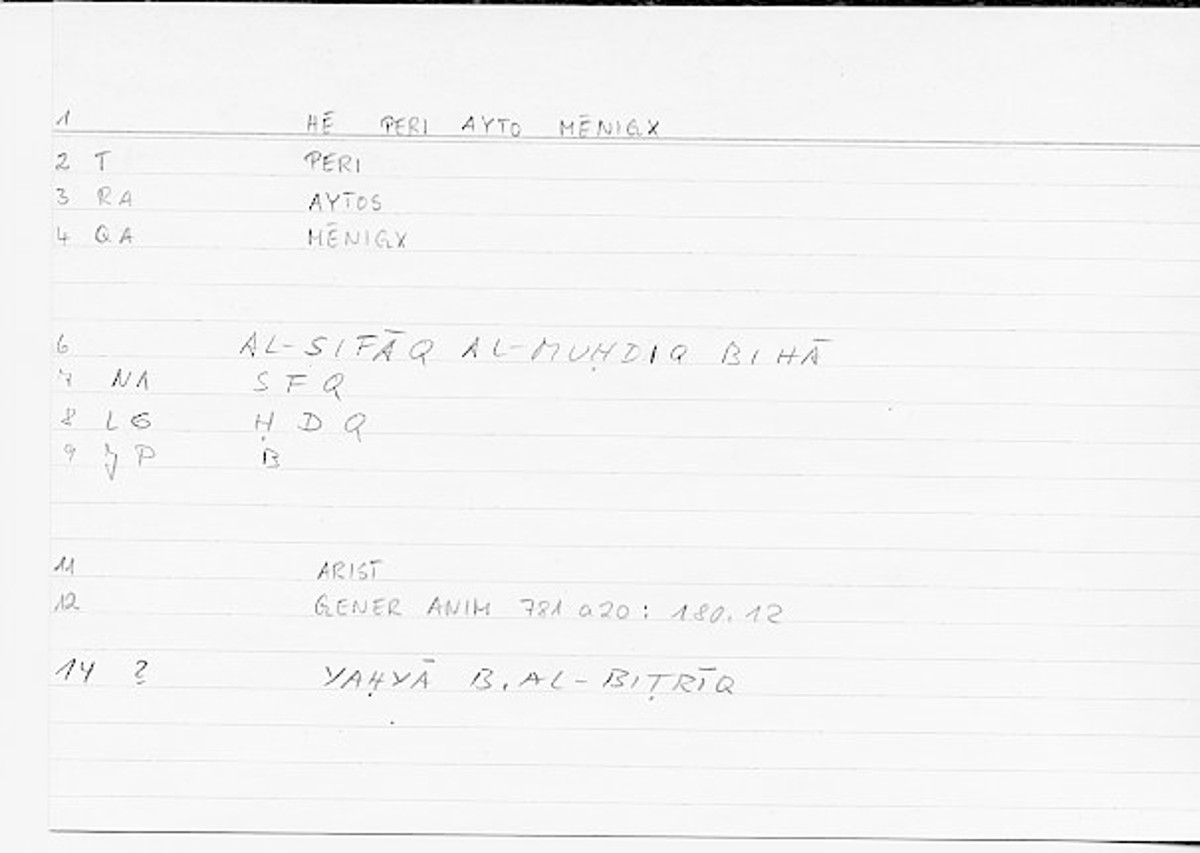 1 HĒ PERI AYTO MĒNIGX
2 T PERI
3 RA AYTOS
4 QA MĒNIGX
6 AL-ṢIFĀQ AL-MUḤDIQ BIHĀ
7 NA SFQ
8 LG ḤDQ
9 JP B
11 ARIST
12 GENER ANIM 781 a20: 180.12
14 2 YAḤYĀ B. AL-BIṬRĪQ